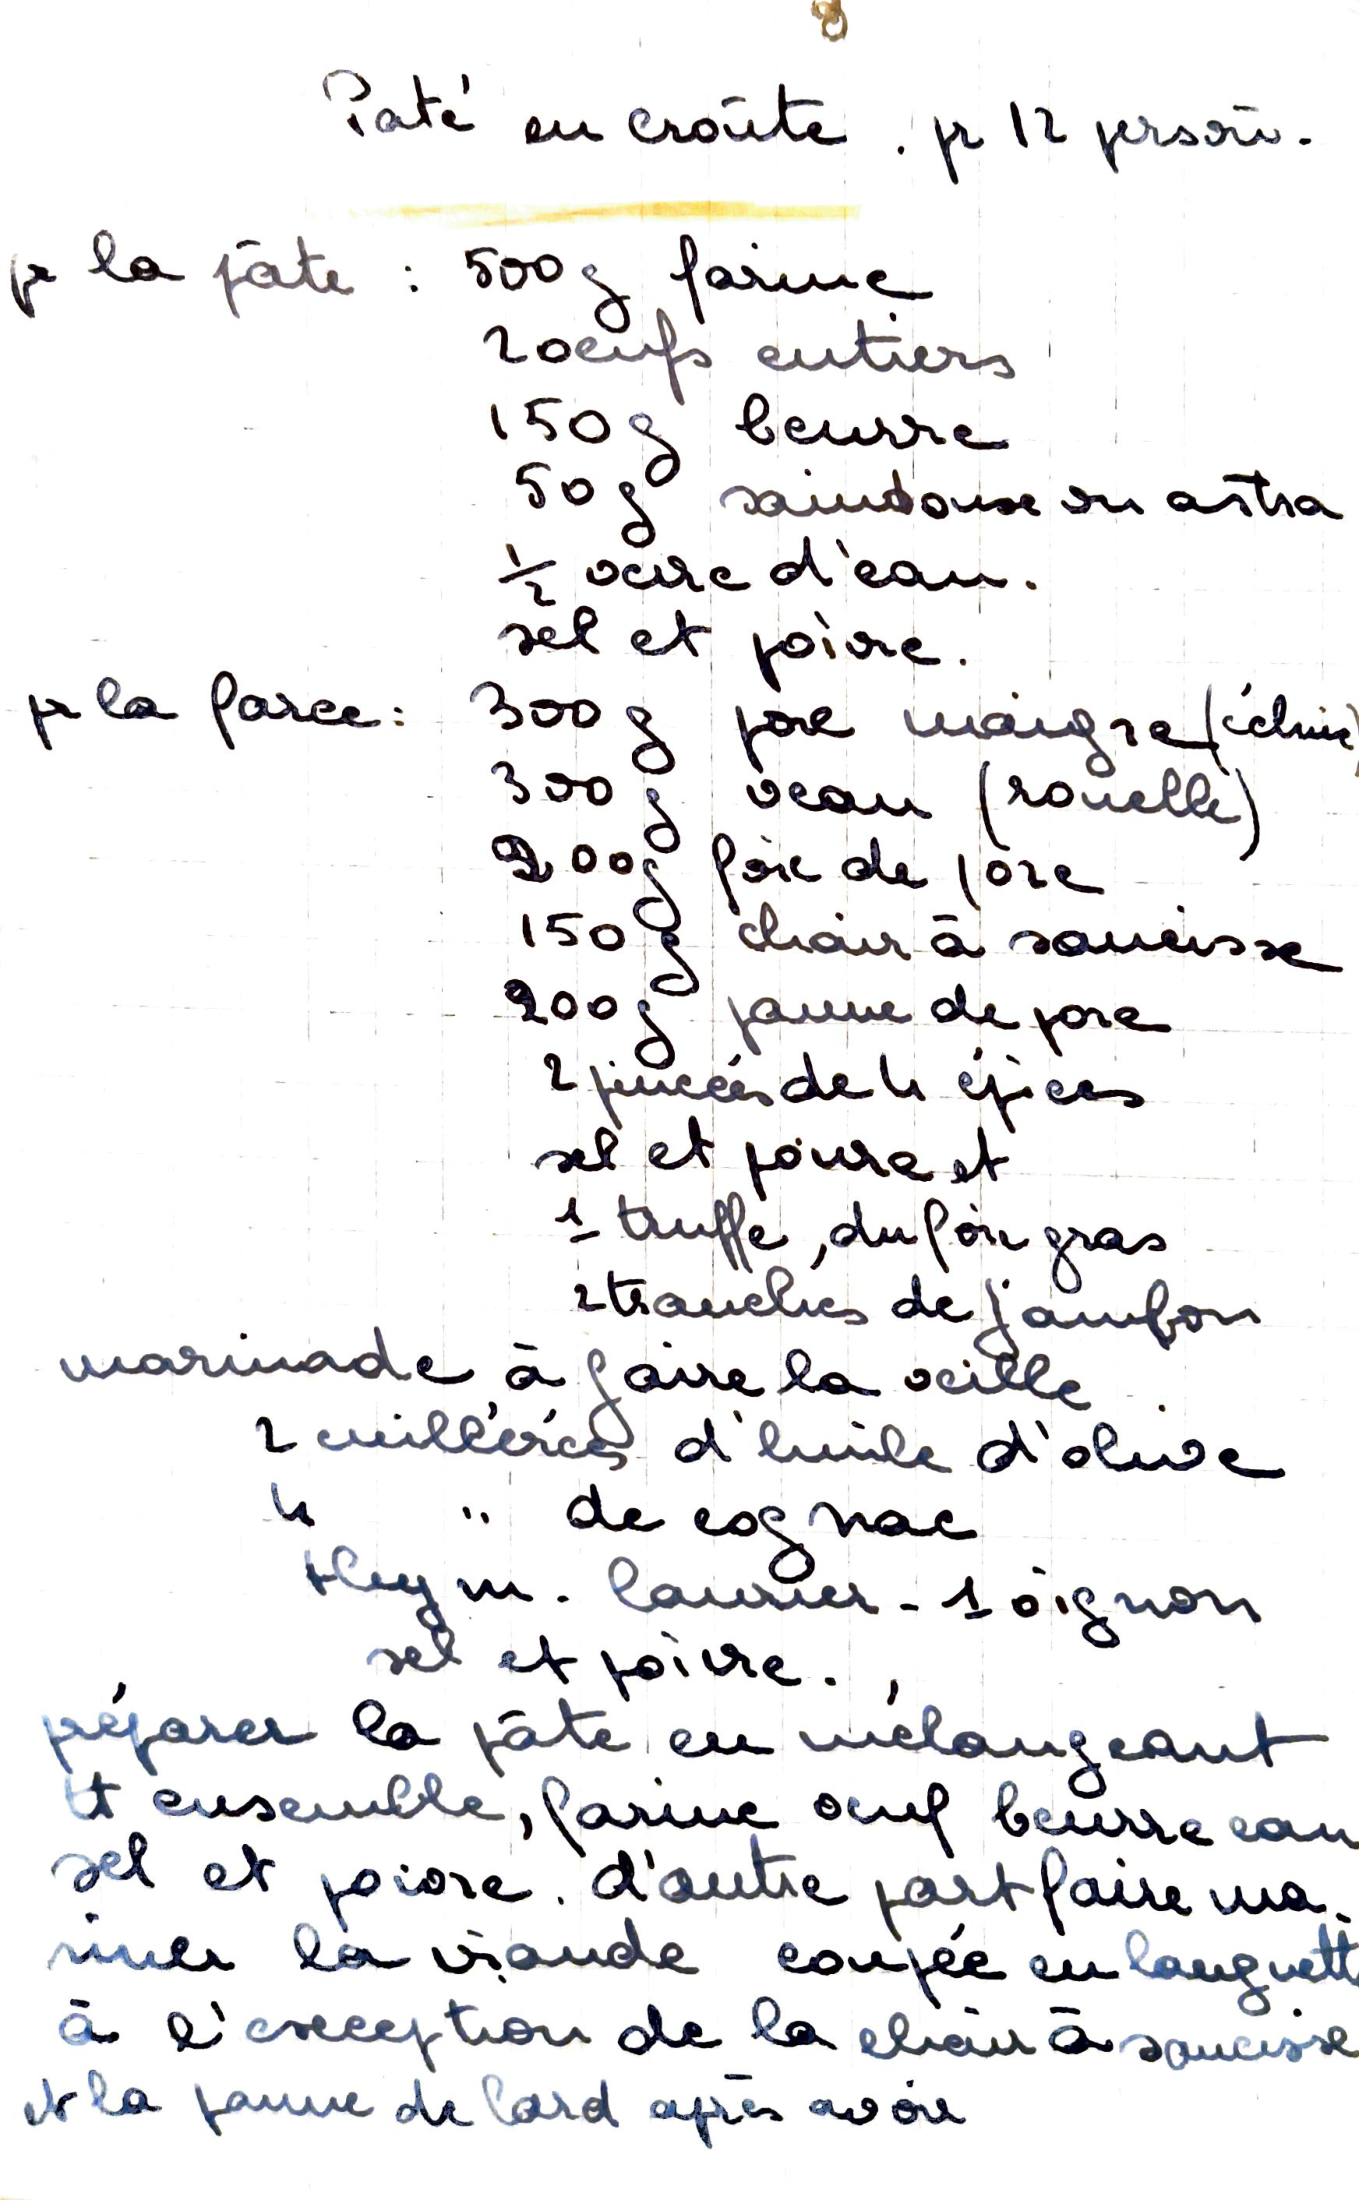 Paté en croûte . pr 12 person.
pr la pâte : 500g farine
2 oeufs entiers
150g beurre
50g saindoux ou astra
1/2 verre d'eau.
sel et poivre.
pr la farce : 300g porc maigre (échine)
300g veau (rouelle)
200g foie de porc
150g chair à saucisse
200g panne de porc
2 pincées de 4 épices
sel et poivre et
1 truffe, du foie gras
2 tranches de jambon
marinade à faire la veille
2 cuillérées d'huile d'olive
4 " de cognac
thym - laurier - 1 oignon
sel et poivre.
préparer la pâte en mélangeant
tt ensemble, farine oeuf beurre eau
sel et poivre. d'autre part faire ma-
riner la viande coupée en languett
à l'exception de la chair à saucisse
et la panne de lard après avoir